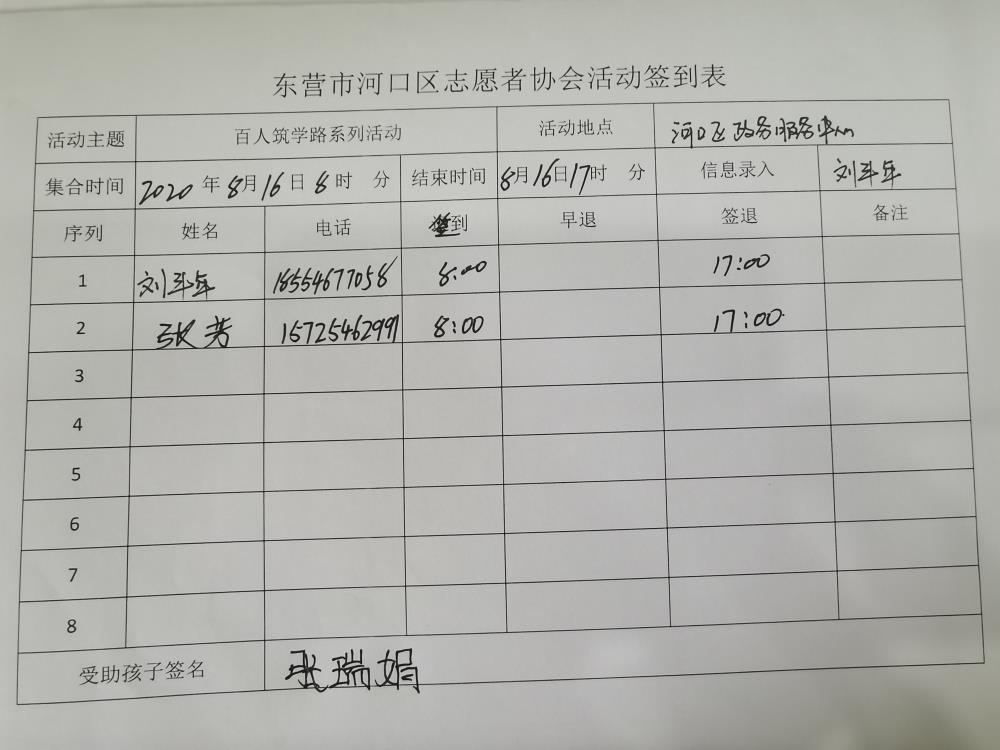 东营市河口区志愿者协会活动签到表
活动主题 百人筑学路系列活动 活动地点 河口区政务服务中心
集合时间 2020年8月16日8时 分 结束时间 8月16日17时 分 信息录入 刘平年
序列 姓名 电话 签到 早退 签退 备注
1 刘平年 18554677058 8:00 17:00
2 张芳 15725462991 8:00 17:00
3
4
5
6
7
8
受助孩子签名 张瑞娟